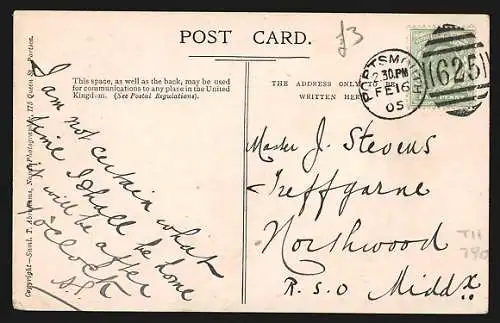 POST CARD.
£3
This space, as well as the back, may be used
for communications to any place in the United
Kingdom. (See Postal Regulations).
THE ADDRESS ONLY
WRITTEN HERE
PORTSMOUTH
30.PM
FE 16
05
625
PENNY
I am not certain what
time I shall be home
it will be after
o'clock
Master J. Stevens
Treffgarne
Northwood
R.S.O Middx
TH
790
Copyright—Saml. T. Abrahams, Naval Photographer, 175 Queen St., Portsea.